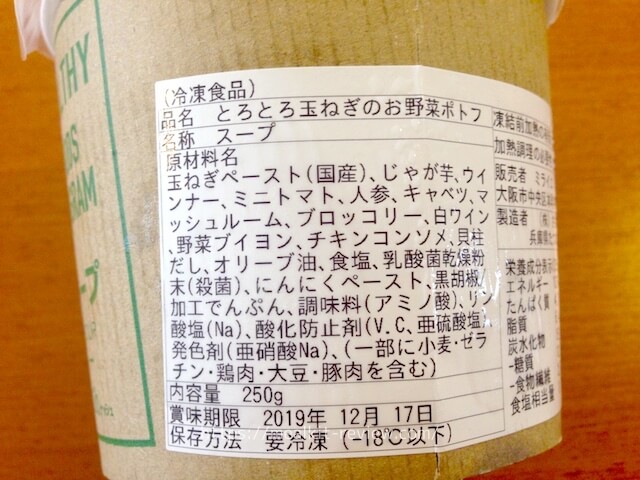 (冷凍食品)
品名 とろとろ玉ねぎのお野菜ポトフ
名称 スープ
原材料名
玉ねぎペースト(国産)、じゃが芋、ウイ
ンナー、ミニトマト、人参、キャベツ、マ
ッシュルーム、ブロッコリー、白ワイン
、野菜ブイヨン、チキンコンソメ、貝柱
だし、オリーブ油、食塩、乳酸菌乾燥粉
末(殺菌)、にんにくペースト、黒胡椒/
加工でんぷん、調味料(アミノ酸)、リン
酸塩(Na)、酸化防止剤(V.C、亜硫酸塩)
発色剤(亜硝酸Na)、(一部に小麦・ゼラ
チン・鶏肉・大豆・豚肉を含む)
内容量 250g
賞味期限 2019年 12月 17日
保存方法 要冷凍 (-18℃以下)
凍結前加熱の
加熱調理の必要
販売者 ミライ
大阪市中央区
製造者 (株)
兵庫県
栄養成分表示
エネルギー
たんぱく質
脂質
炭水化物
-糖質
-食物繊維
食塩相当量
LTHY
GRAM
ープ